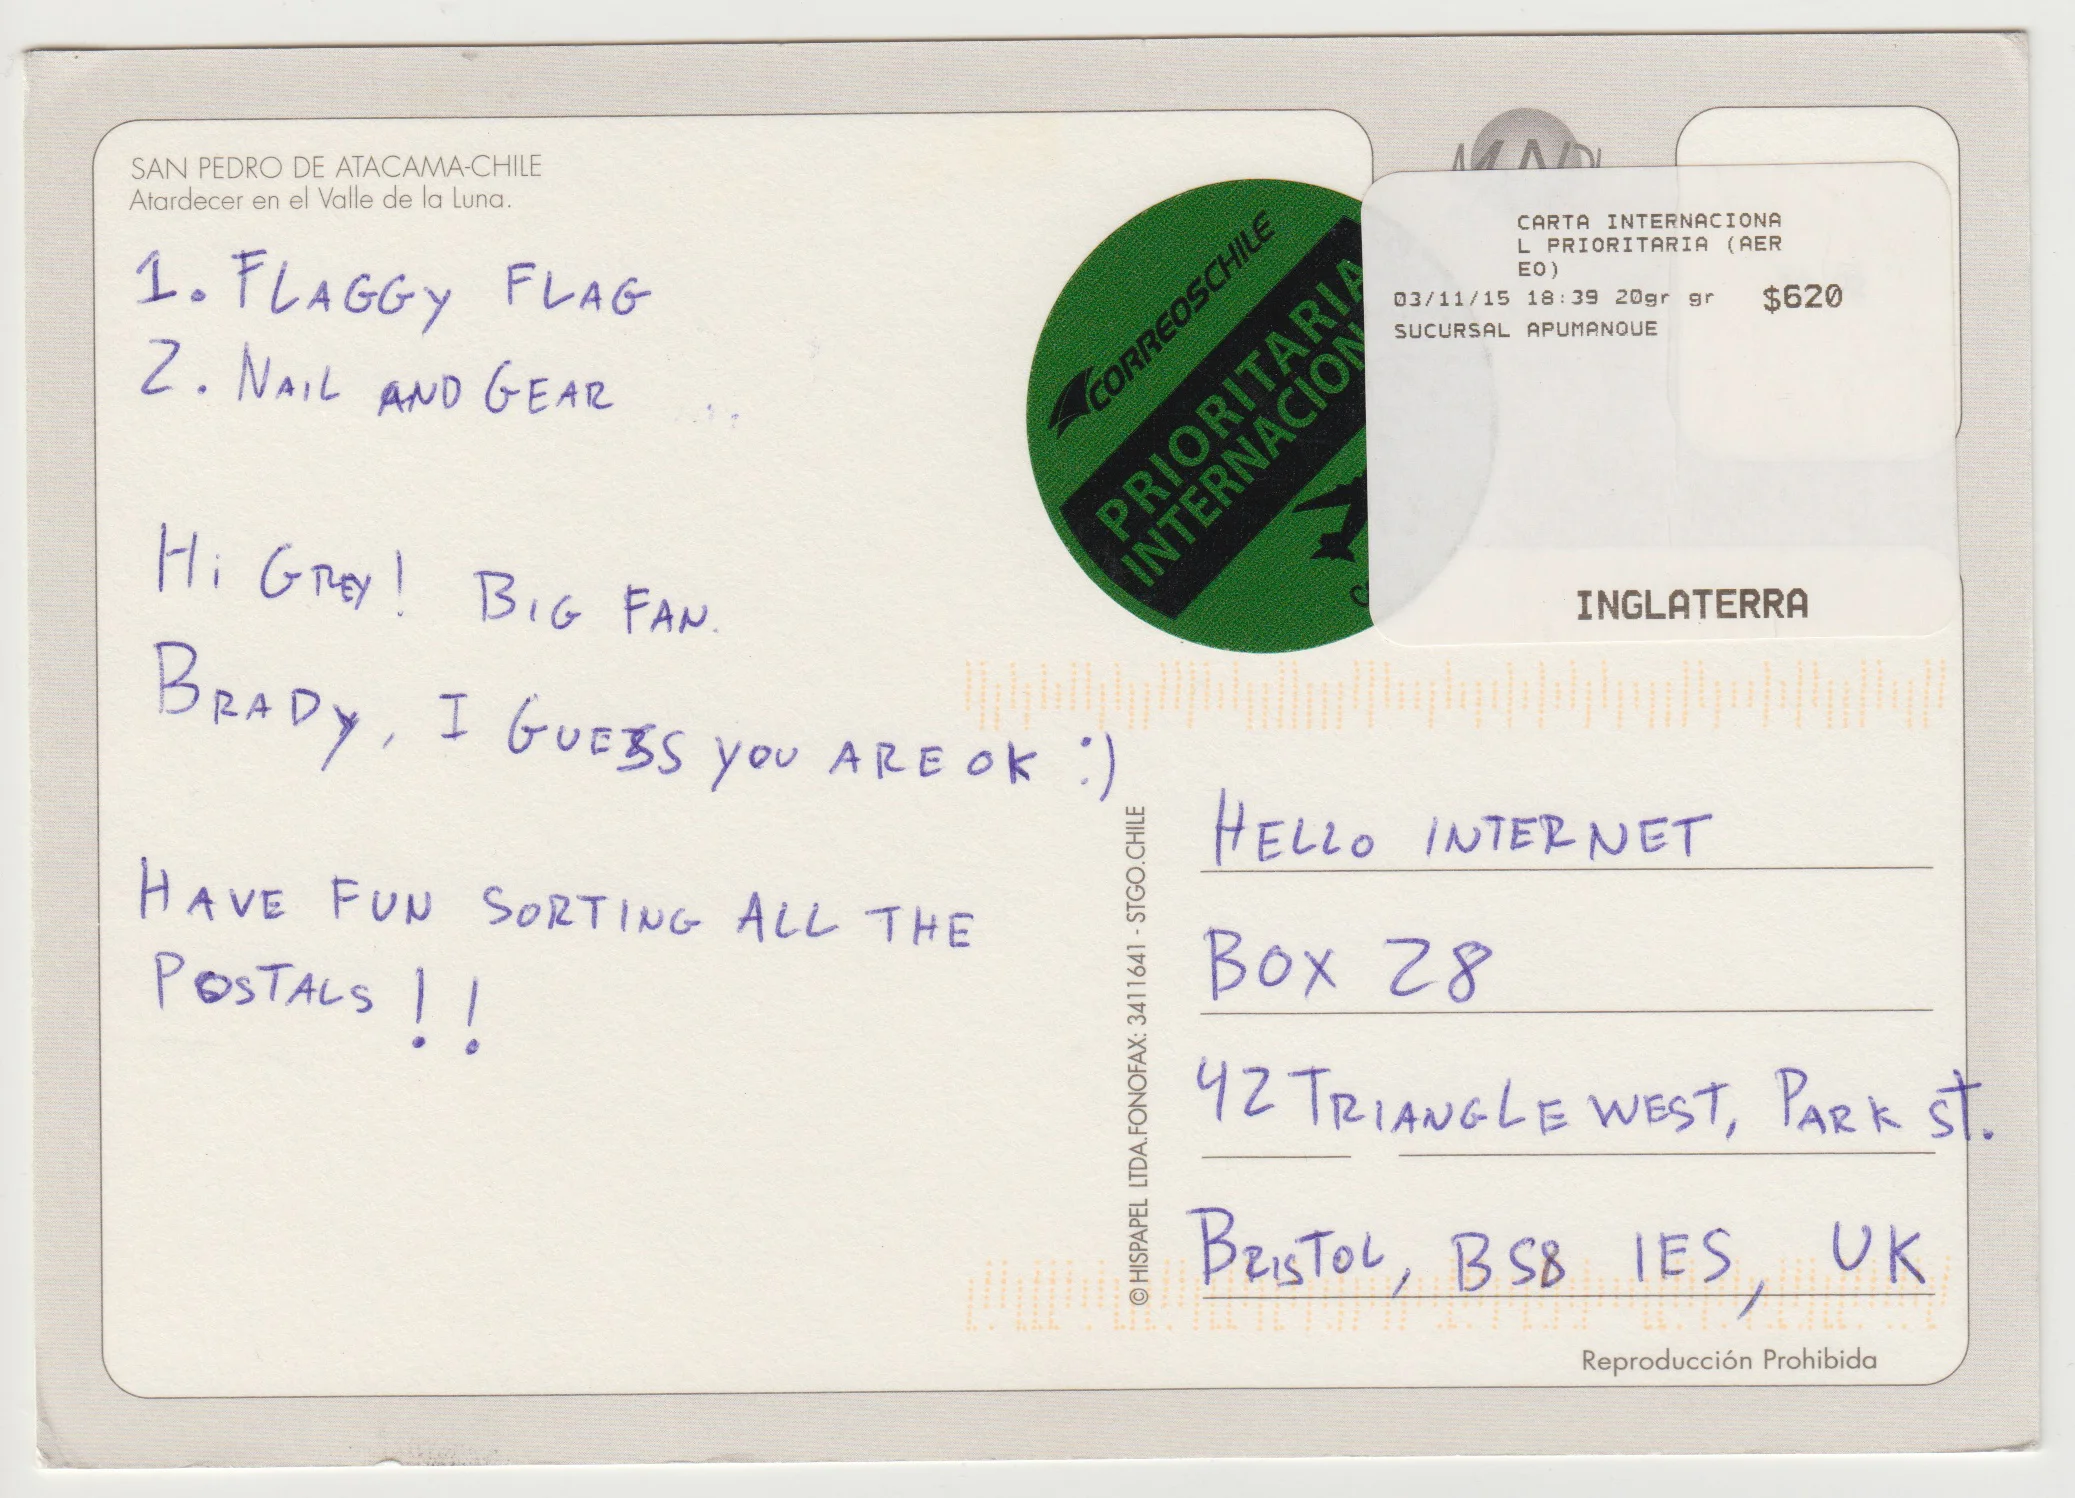 SAN PEDRO DE ATACAMA-CHILE
Atardecer en el Valle de la Luna.
1. FLAGGY FLAG
2. NAIL AND GEAR
HI GREY! BIG FAN.
BRADY, I GUESS YOU ARE OK :)
HAVE FUN SORTING ALL THE
POSTALS!!
CORREOSCHILE
PRIORITARIA
INTERNACION
CARTA INTERNACIONA
L PRIORITARIA (AER
EO)
03/11/15 18:39 20gr gr $620
SUCURSAL APUMANQUE
INGLATERRA
© HISPAPEL LTDA.FONOFAX: 3411641 - STGO.CHILE
HELLO INTERNET
BOX 28
42 TRIANGLE WEST, PARK ST.
BRISTOL, BS8 1ES, UK
Reproducción Prohibida